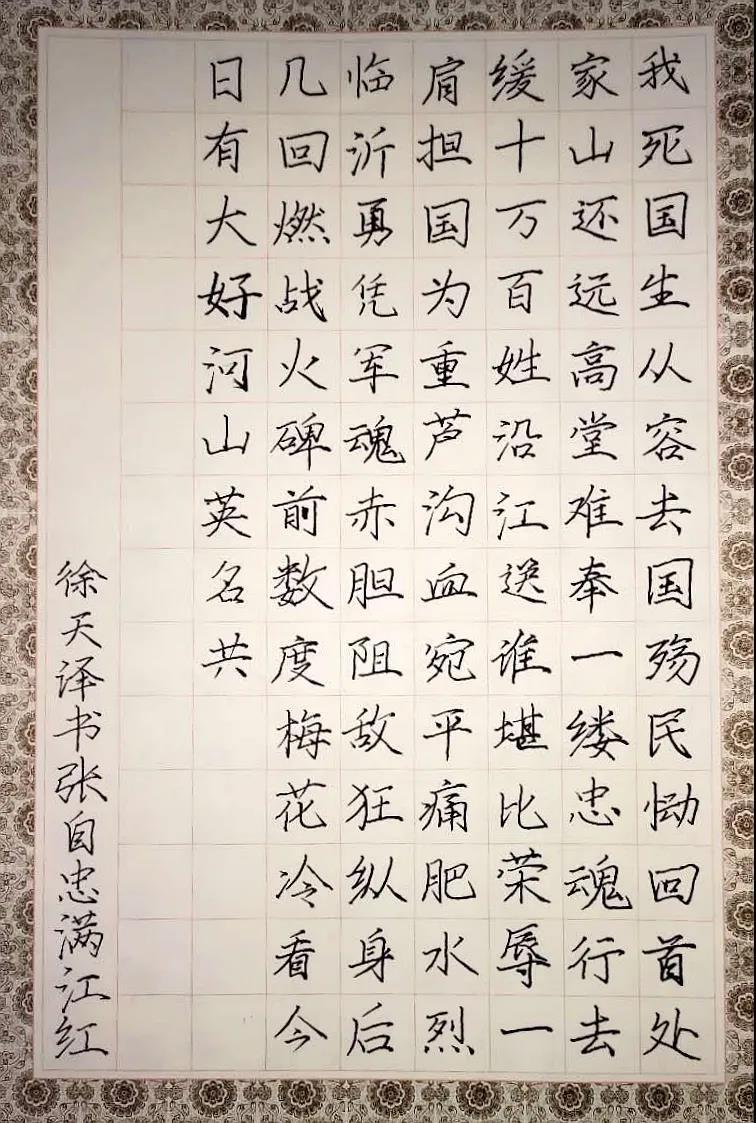 我死国生从容去国殇民恸回首处
家山还远高堂难奉一缕忠魂行去
缓十万百姓沿江送谁堪比荣辱一
肩担国为重芦沟血宛平痛肥水烈
临沂勇凭军魂赤胆阻敌狂纵身后
几回燃战火碑前数度梅花冷看今
日有大好河山英名共
徐天译书张自忠满江红